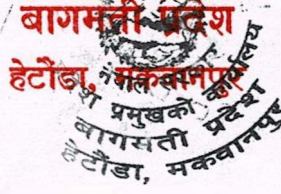 बागमती प्रदेश
हेटौंडा, मकवानपुर
नेपाल सरकार
प्रमुखको कार्यालय
बागमती प्रदेश
हेटौंडा, मकवानपुर